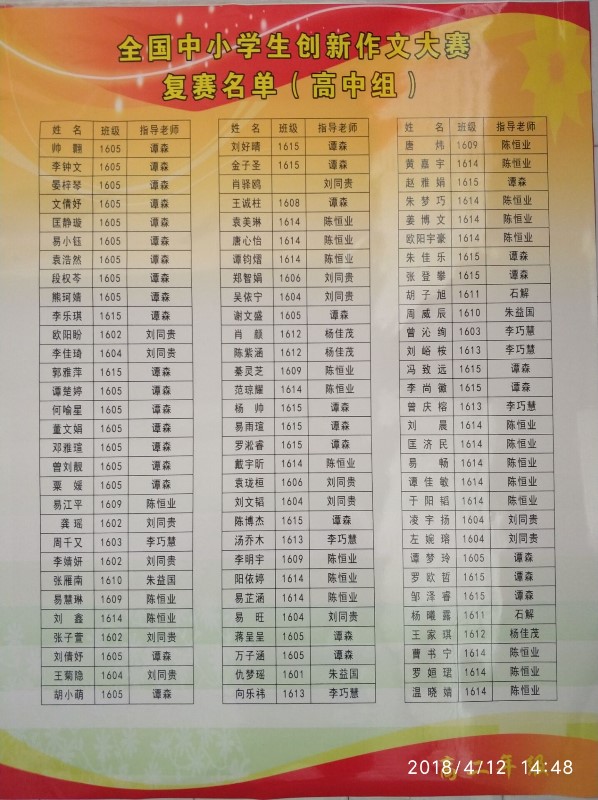 全国中小学生创新作文大赛
复赛名单（高中组）
姓 名 班级 指导老师
帅 翾 1605 谭森
李钟文 1605 谭森
晏梓琴 1605 谭森
文倩妤 1605 谭森
匡静璇 1605 谭森
易小钰 1605 谭森
袁浩然 1605 谭森
段权芩 1605 谭森
熊珂婧 1605 谭森
李乐琪 1615 谭森
欧阳盼 1602 刘同贵
李佳琦 1604 刘同贵
郭雅萍 1615 谭森
谭楚婷 1605 谭森
何喻星 1605 谭森
董文娟 1605 谭森
邓雅瑄 1605 谭森
曾刘靓 1605 谭森
粟 媛 1605 谭森
易江平 1609 陈恒业
龚 瑶 1602 刘同贵
周千又 1603 李巧慧
李婧妍 1602 刘同贵
张雁南 1610 朱益国
易慧琳 1609 陈恒业
刘 鑫 1614 陈恒业
张子萱 1602 刘同贵
刘倩妤 1605 谭森
王菊隐 1604 刘同贵
胡小萌 1605 谭森
姓 名 班级 指导老师
刘好晴 1615 谭森
金子圣 1615 谭森
肖驿鸥 刘同贵
王诚柱 1608 谭森
袁美琳 1614 陈恒业
唐心怡 1614 陈恒业
谭钧熠 1614 陈恒业
郑智娟 1606 刘同贵
吴依宁 1604 刘同贵
谢文盛 1605 谭森
肖 颜 1612 杨佳茂
陈紫涵 1612 杨佳茂
綦灵芝 1609 陈恒业
范琼耀 1614 陈恒业
杨 帅 1615 谭森
易雨瑄 1615 谭森
罗淞睿 1615 谭森
戴宇昕 1614 陈恒业
袁珑桓 1606 刘同贵
刘文韬 1604 刘同贵
陈博杰 1615 谭森
汤乔木 1613 李巧慧
李明宇 1609 陈恒业
阳依婷 1614 陈恒业
易芷涵 1614 陈恒业
易 旺 1604 刘同贵
蒋呈呈 1605 谭森
万子涵 1605 谭森
仇梦瑶 1601 朱益国
向乐祎 1613 李巧慧
姓 名 班级 指导老师
唐 炜 1609 陈恒业
黄嘉宇 1614 陈恒业
赵雅娟 1615 谭森
朱梦巧 1614 陈恒业
姜博文 1614 陈恒业
欧阳宇豪 1614 陈恒业
朱佳乐 1615 谭森
张登攀 1615 谭森
胡子旭 1611 石解
周威辰 1610 朱益国
曾沁绚 1603 李巧慧
刘峪桉 1613 李巧慧
冯致远 1615 谭森
李尚徽 1615 谭森
曾庆榕 1613 李巧慧
刘 晨 1614 陈恒业
匡济民 1614 陈恒业
易 畅 1614 陈恒业
谭佳敏 1614 陈恒业
于阳韬 1614 陈恒业
凌宇扬 1604 刘同贵
左婉瑢 1604 刘同贵
谭梦玲 1605 谭森
罗欧哲 1615 谭森
邹泽睿 1615 谭森
杨曦露 1611 石解
王家琪 1612 杨佳茂
曹书宁 1614 陈恒业
罗姮珺 1614 陈恒业
温晓婧 1614 陈恒业
高二年级
2018/4/12 14:48